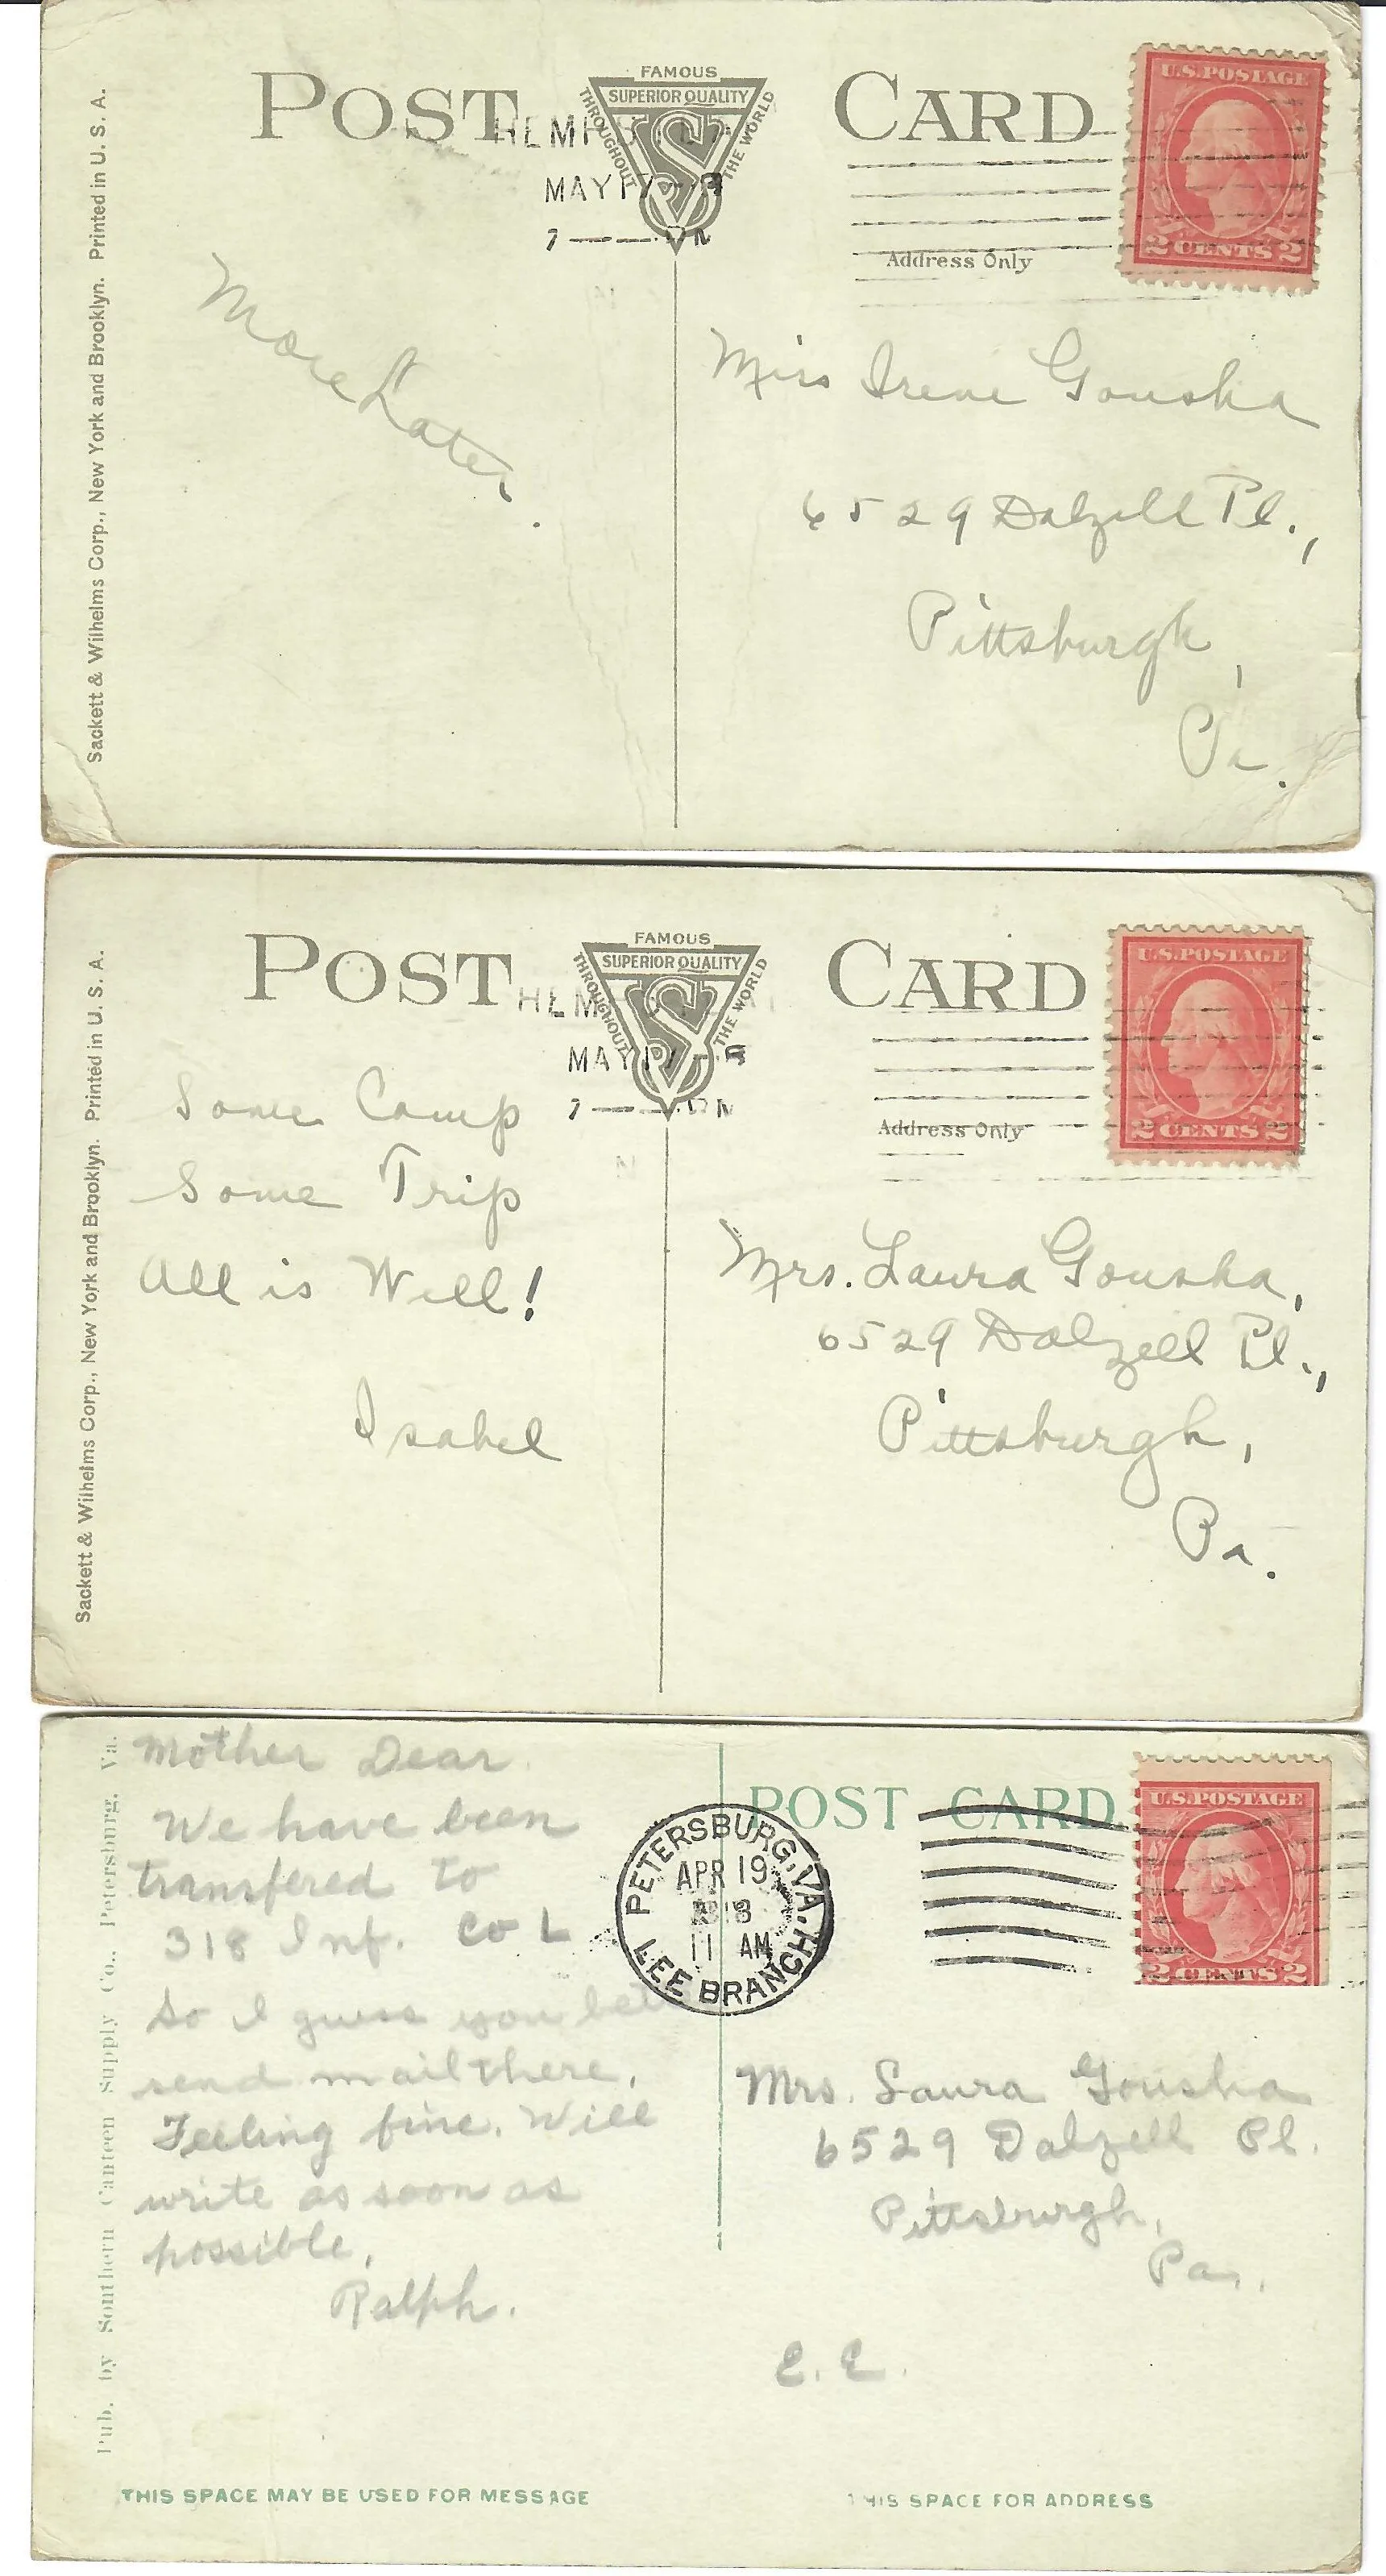 POST CARD
FAMOUS
SUPERIOR QUALITY
THROUGHOUT
THE WORLD
S
U.S. POSTAGE
2 CENTS 2
HEMPS
MAY 17
7
Address Only
Sackett & Wilhelms Corp., New York and Brooklyn. Printed in U. S. A.
More Later.
Miss Irene Gousha
6529 Dalzell Pl.,
Pittsburgh,
Pa.
POST CARD
FAMOUS
SUPERIOR QUALITY
THROUGHOUT
THE WORLD
S
U.S. POSTAGE
2 CENTS 2
HEMP
MAY
7
Address Only
Sackett & Wilhelms Corp., New York and Brooklyn. Printed in U. S. A.
Some Camp
Some Trip
All is Well!
Isabel
Mrs. Laura Gousha,
6529 Dalzell Pl.,
Pittsburgh,
Pa.
Pub. by Southern Canteen Supply Co., Petersburg, Va.
Mother Dear.
We have been
transfered to
318 Inf. Co L
So I guess you
send mail there.
Feeling fine. Will
write as soon as
possible.
Ralph.
THIS SPACE MAY BE USED FOR MESSAGE
POST CARD
U.S. POSTAGE
2 CENTS 2
PETERSBURG, VA.
APR 19
11 AM
LEE BRANCH
Mrs. Laura Gousha
6529 Dalzell Pl.
Pittsburgh,
Pa.
E. E.
THIS SPACE FOR ADDRESS